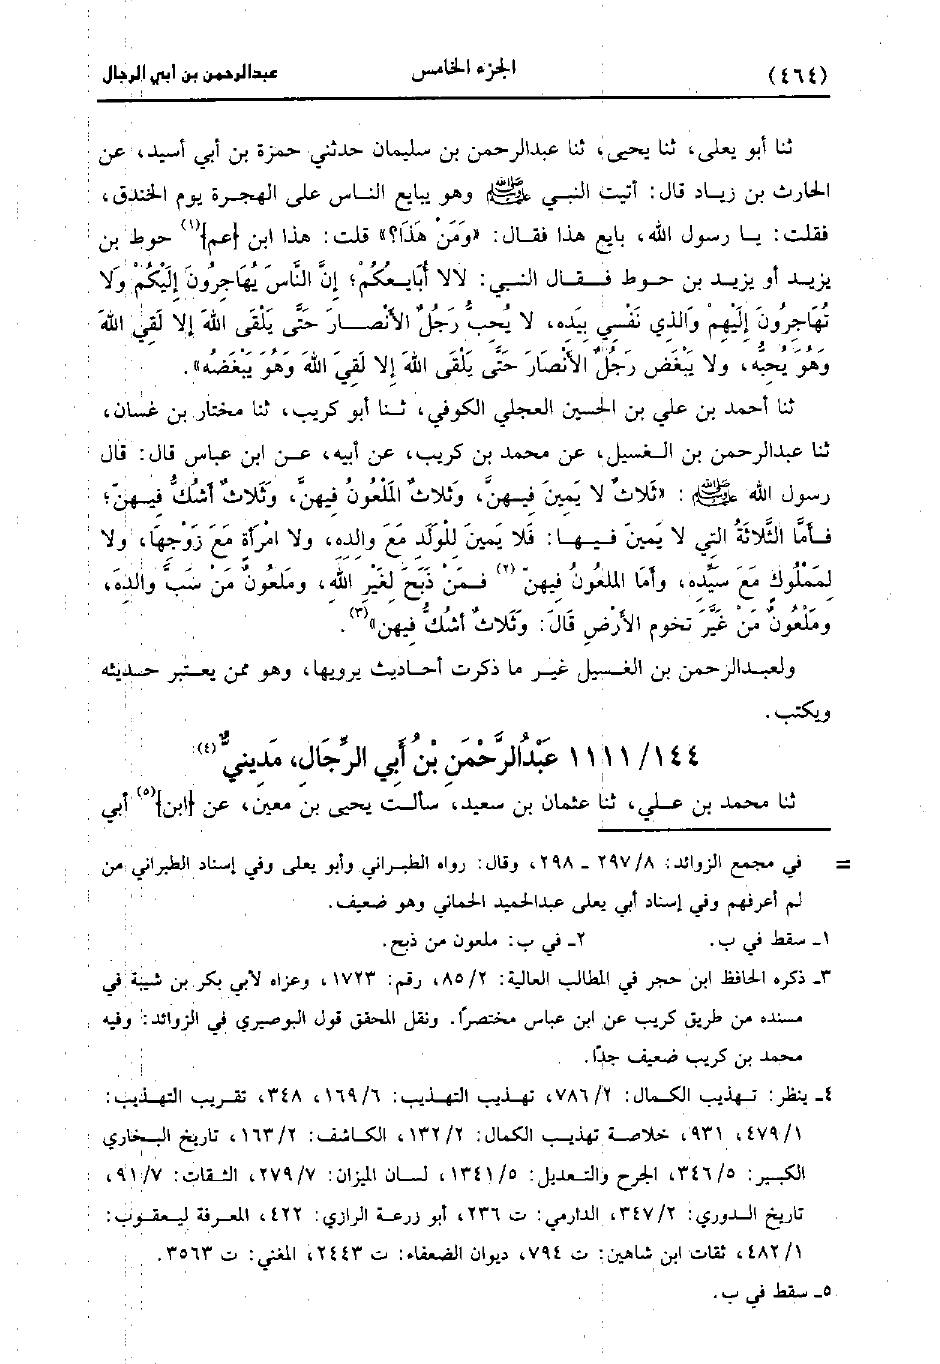 (٤٦٤) الجزء الخامس عبدالرحمن بن أبي الرجال
ثنا أبو يعلى، ثنا يحيى، ثنا عبدالرحمن بن سليمان حدثني حمزة بن أبي أسيد، عن
الحارث بن زياد قال: أتيت النبي ﷺ وهو يبايع الناس على الهجرة يوم الخندق،
فقلت: يا رسول الله، بايع هذا فقال: «وَمَنْ هَذَا؟» قلت: هذا ابن [عم](١) حوط بن
يزيد أو يزيد بن حوط فقال النبي: «لا أُبَايعُكُمْ؛ إِنَّ النَّاسَ يُهَاجِرُونَ إِلَيْكُمْ وَلَا
تُهَاجِرُونَ إِلَيْهِمْ وَالذي نَفْسِي بِيَده، لا يُحبُّ رَجُلٌ الأَنْصَارَ حَتَّى يَلْقَى اللهَ إلا لَقِيَ اللهَ
وَهُوَ يُحِبُّه، ولا يَبْغَض رَجُلٌ الأَنْصَارَ حَتَّى يَلْقَى اللهَ إلا لَقِيَ اللهَ وَهُوَ يَبْغَضُه».
ثنا أحمد بن علي بن الحسين العجلي الكوفي، ثنا أبو كريب، ثنا مختار بن غسان،
ثنا عبدالرحمن بن الغسيل، عن محمد بن كريب، عن أبيه، عن ابن عباس قال: قال
رسول الله ﷺ: «ثَلاثٌ لا يَمِينَ فِيهنَّ، وَثَلاثٌ المَلْعُونُ فِيهنَّ، وَثَلاثٌ أَشُكُّ فِيهنّ؛
فَأمَّا الثَّلاثَةُ التِي لا يَمِينَ فِيهَا: فَلا يَمِينَ للْوَلَدِ مَعَ والده، ولا امْرَأة مَعَ زَوْجِهَا، ولا
لِمَمْلُوكٍ مَعَ سَيِّده، وأمَا الملعُونُ فِيهنّ(٢) فَمَنْ ذَبَحَ لغَيْرِ اللهِ، وَملعُونٌ مَنْ سَبَّ والدَهُ،
وَمَلْعُونٌ مَنْ غَيَّرَ تخوم الأرْضِ قَالَ: وَثَلاثٌ أشكُّ فيهن»(٣).
ولعبدالرحمن بن الغسيل غير ما ذكرت أحاديث يرويها، وهو ممن يعتبر حديثه
ويكتب.
١١١١/١٤٤ عَبْدُالرَّحْمَنِ بْنُ أَبي الرِّجَالِ، مَدِينيٌّ(٤):
ثنا محمد بن علي، ثنا عثمان بن سعيد، سألت يحيى بن معين، عن [ابن](٥) أبي
= في مجمع الزوائد: ٢٩٧/٨ ـ ٢٩٨، وقال: رواه الطبراني وأبو يعلى وفي إسناد الطبراني من
لم أعرفهم وفي إسناد أبي يعلى عبدالحميد الحماني وهو ضعيف.
١ـ سقط في ب. ٢ـ في ب: ملعون من ذبح.
٣ـ ذكره الحافظ ابن حجر في المطالب العالية: ٨٥/٢، رقم: ١٧٢٣، وعزاه لأبي بكر بن شيبة في
مسنده من طريق كريب عن ابن عباس مختصرًا. ونقل المحقق قول البوصيري في الزوائد: وفيه
محمد بن كريب ضعيف جدًا.
٤ـ ينظر: تهذيب الكمال: ٧٨٦/٢، تهذيب التهذيب: ١٦٩/٦، ٣٤٨، تقريب التهذيب:
٤٧٩/١، ٩٣١، خلاصة تهذيب الكمال: ١٣٢/٢، الكاشف: ١٦٣/٢، تاريخ البخاري
الكبير: ٣٤٦/٥، الجرح والتعديل: ١٣٤١/٥، لسان الميزان: ٢٧٩/٧، الثقات: ٩١/٧،
تاريخ الدوري: ٣٤٧/٢، الدارمي: ت ٢٣٦، أبو زرعة الرازي: ٤٢٢، المعرفة ليعقوب:
٤٨٢/١، ثقات ابن شاهين: ت ٧٩٤، ديوان الضعفاء: ت ٢٤٤٣، المغني: ت ٣٥٦٣.
٥ـ سقط في ب.